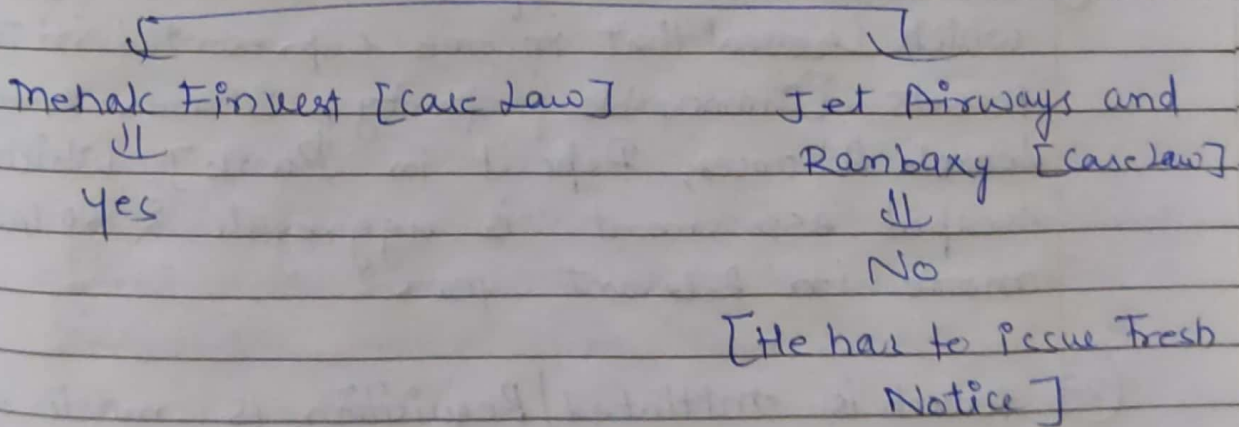 Mehak Finvest [Case Law]
Jet Airways and
Ranbaxy [Case Law]
Yes
No
[He has to issue Fresh
Notice]